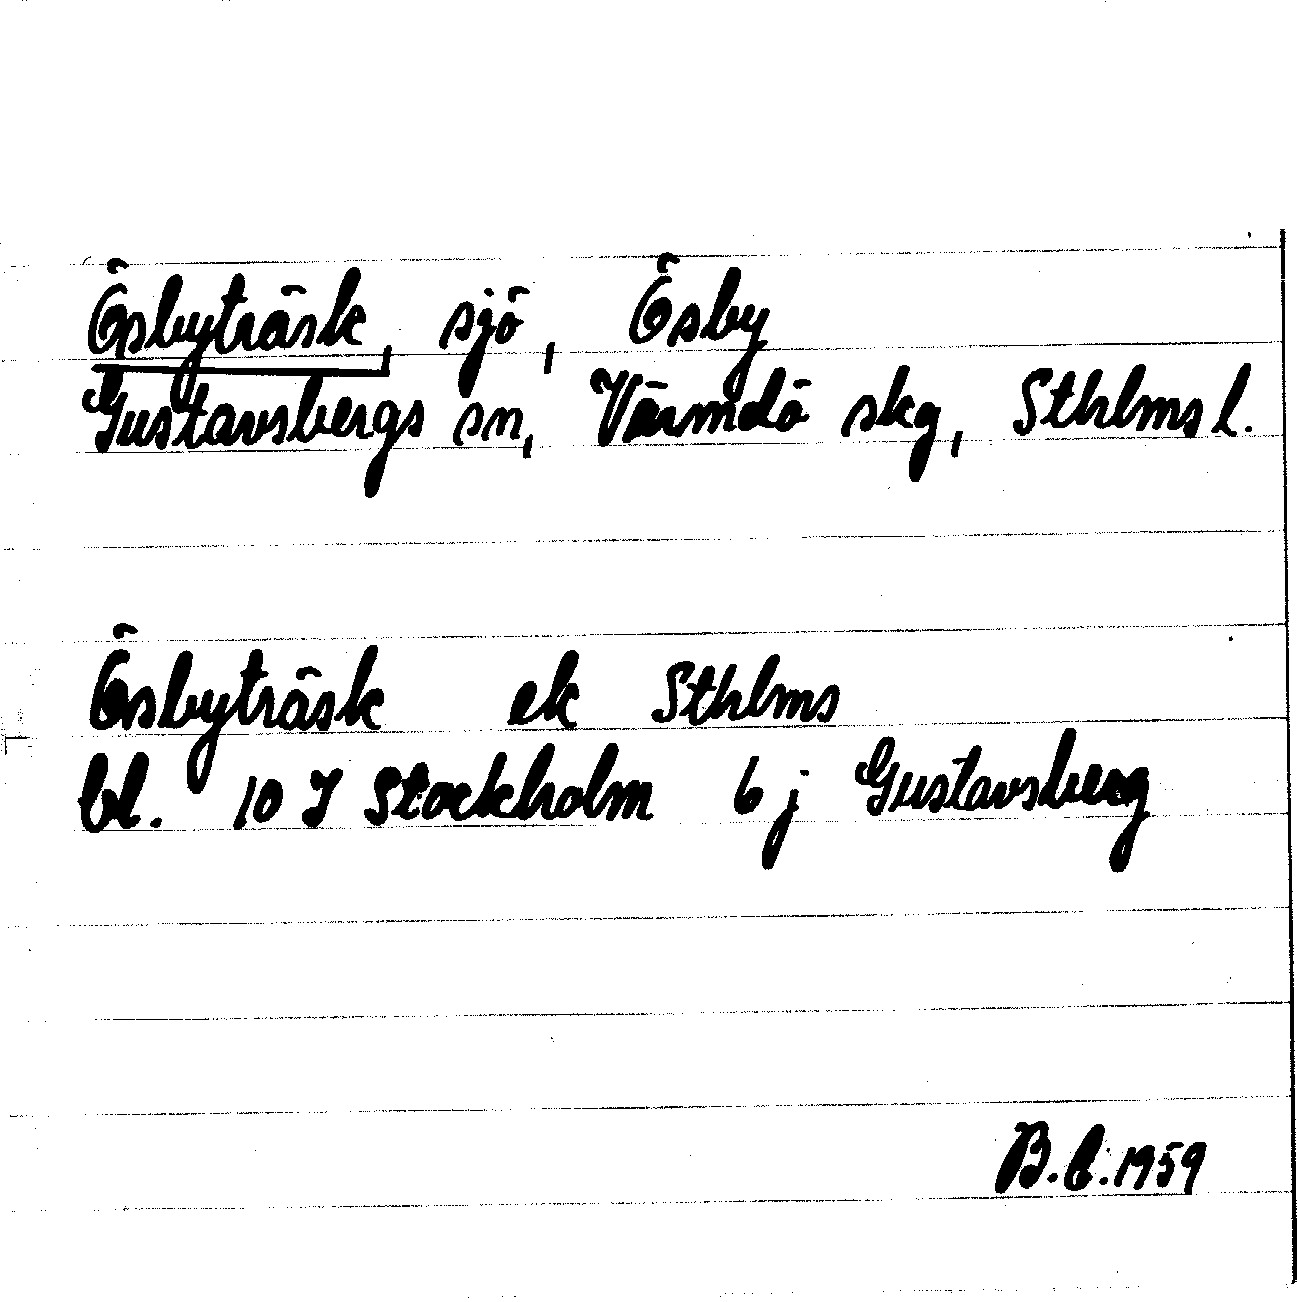 Ösbyträsk, sjö, Ösby
Gustavsbergs sn, Värmdö skg, Sthlms l.
Ösbyträsk ek Sthlms
bl. 10 I Stockholm 6 j Gustavsberg
B. 1959